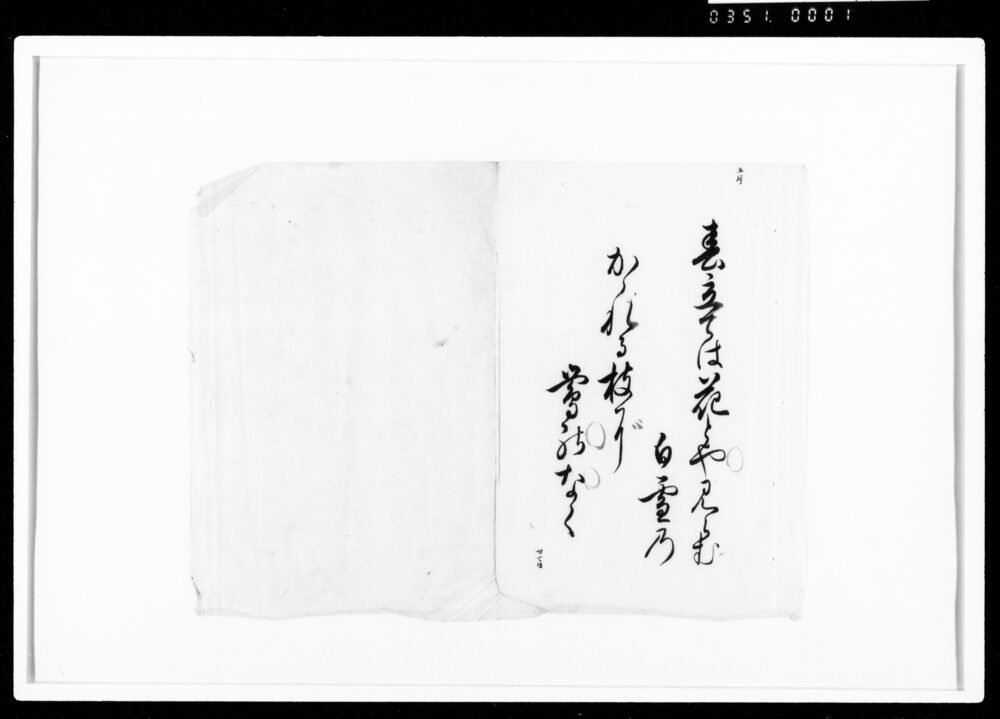 0351. 0001
春立ては花とや見らむ
白雪乃
かゝれる枝に
鶯のなく
廿七日